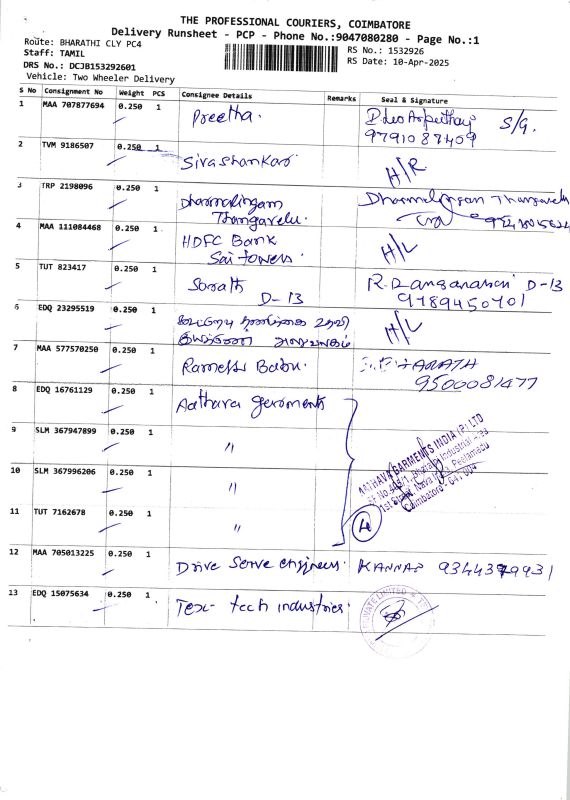 THE PROFESSIONAL COURIERS, COIMBATORE
Delivery Runsheet - PCP - Phone No.:9047080280 - Page No.:1
Route: BHARATHI CLY PC4
Staff: TAMIL
DRS No.: DCJB153292601
Vehicle: Two Wheeler Delivery
RS No.: 1532926
RS Date: 10-Apr-2025
S No Consignment No Weight PCS Consignee Details Remarks Seal & Signature
1 MAA 707877694 0.250 1 Preetha. S/G.
9791087409
2 TVM 9186507 0.250 1 Sivashankar H/R
3 TRP 2198096 0.250 1 Dharmalingam Thangavelu. Dharmalingam Thangavelu
4 MAA 111084468 0.250 1 HDFC Bank Sai towers. H/L
5 TUT 823417 0.250 1 Sarath D-13 D-13
9789450701
6 EDQ 23295519 0.250 1 H/L
7 MAA 577570250 0.250 1 Ramesh Babu. BHARATH
9500081477
8 EDQ 16761129 0.250 1 Aathava garments
9 SLM 367947899 0.250 1 "
10 SLM 367996206 0.250 1 "
11 TUT 7162678 0.250 1 "
4
AATHAVA GARMENTS INDIA (P) LTD
Coimbatore - 641 004
12 MAA 705013225 0.250 1 Drive Serve engineers. KANNAN 9344379931
13 EDQ 15075634 0.250 1 Tex-tech industries.